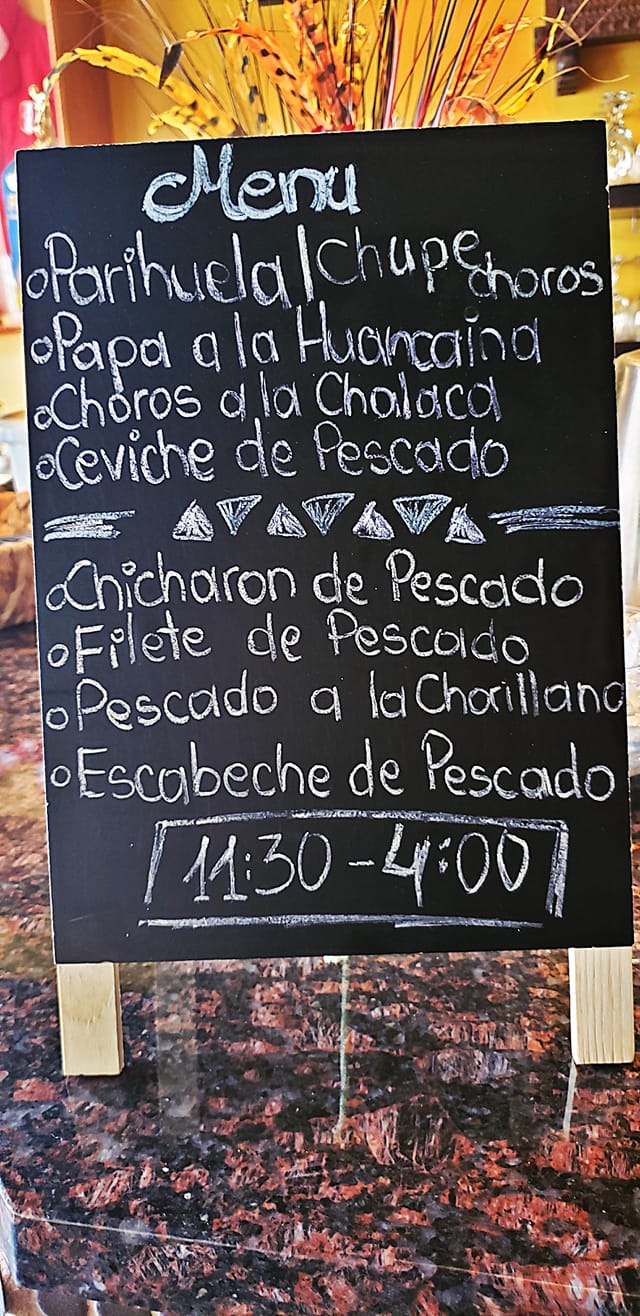 Menu
Parihuela | Chupe choros
Papa a la Huancaina
Choros a la Chalaca
Ceviche de Pescado
Chicharon de Pescado
Filete de Pescado
Pescado a la Chorillana
Escabeche de Pescado
11:30 - 4:00